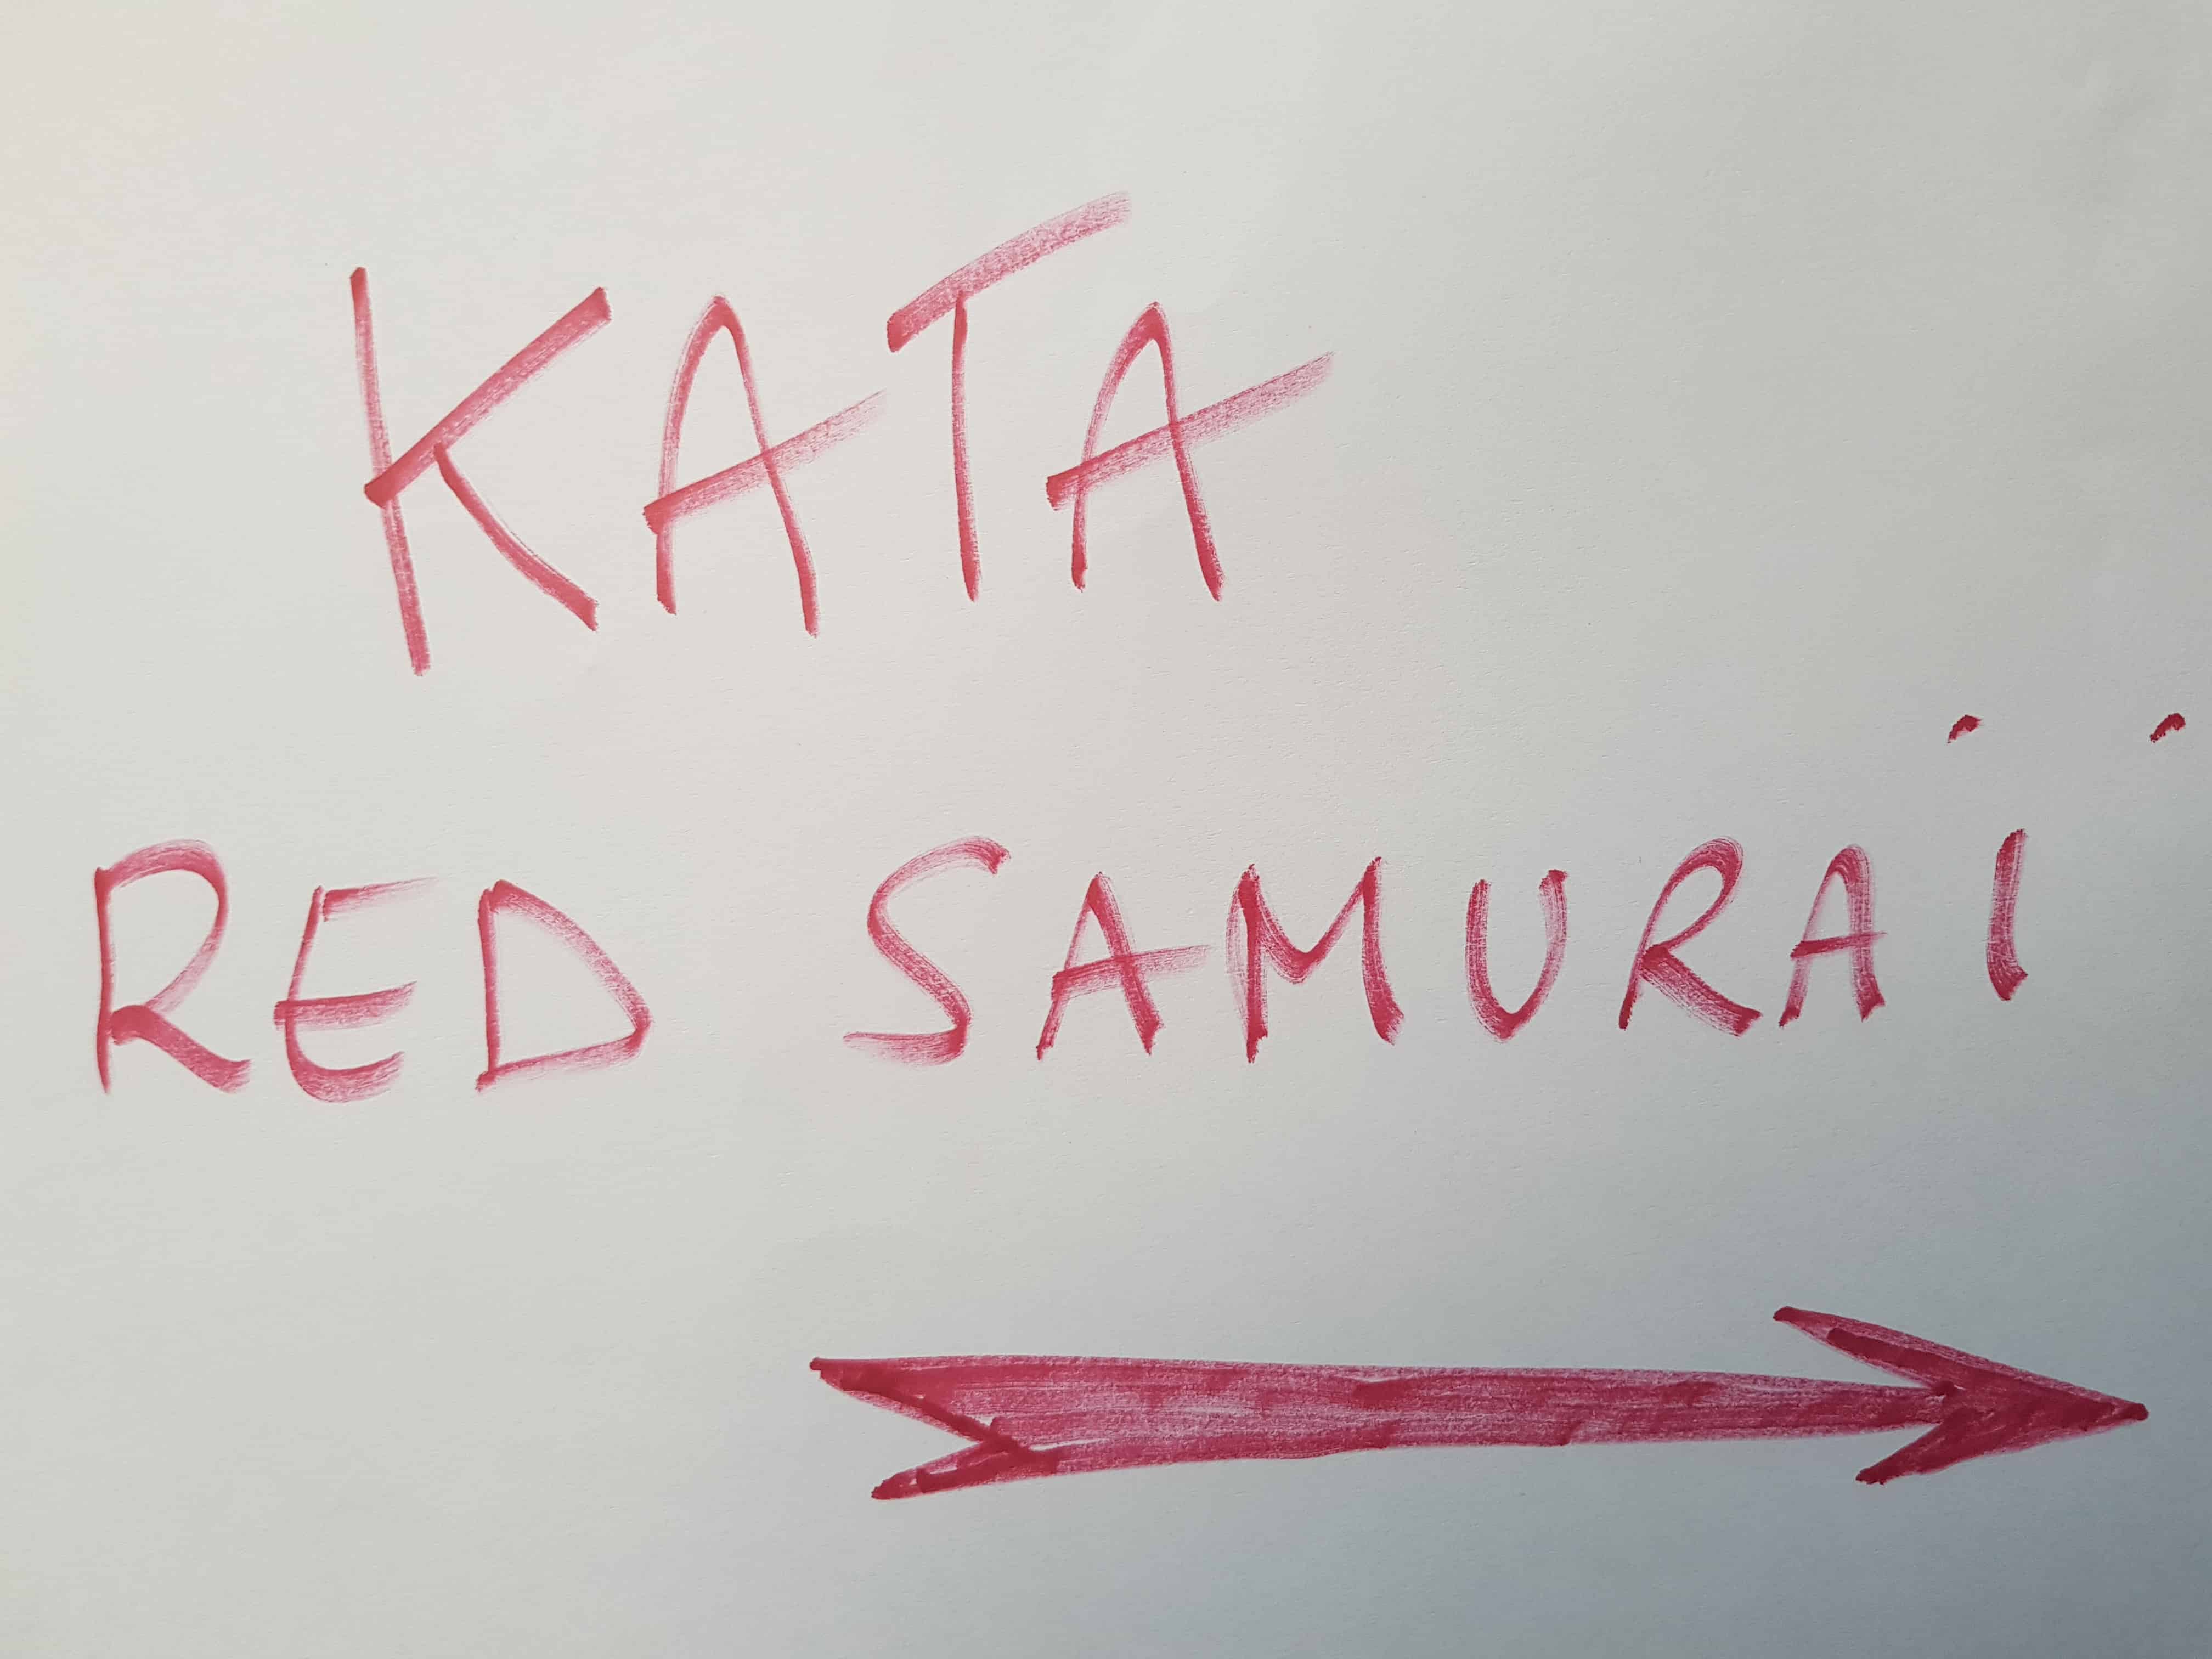 KATA
RED SAMURAÏ